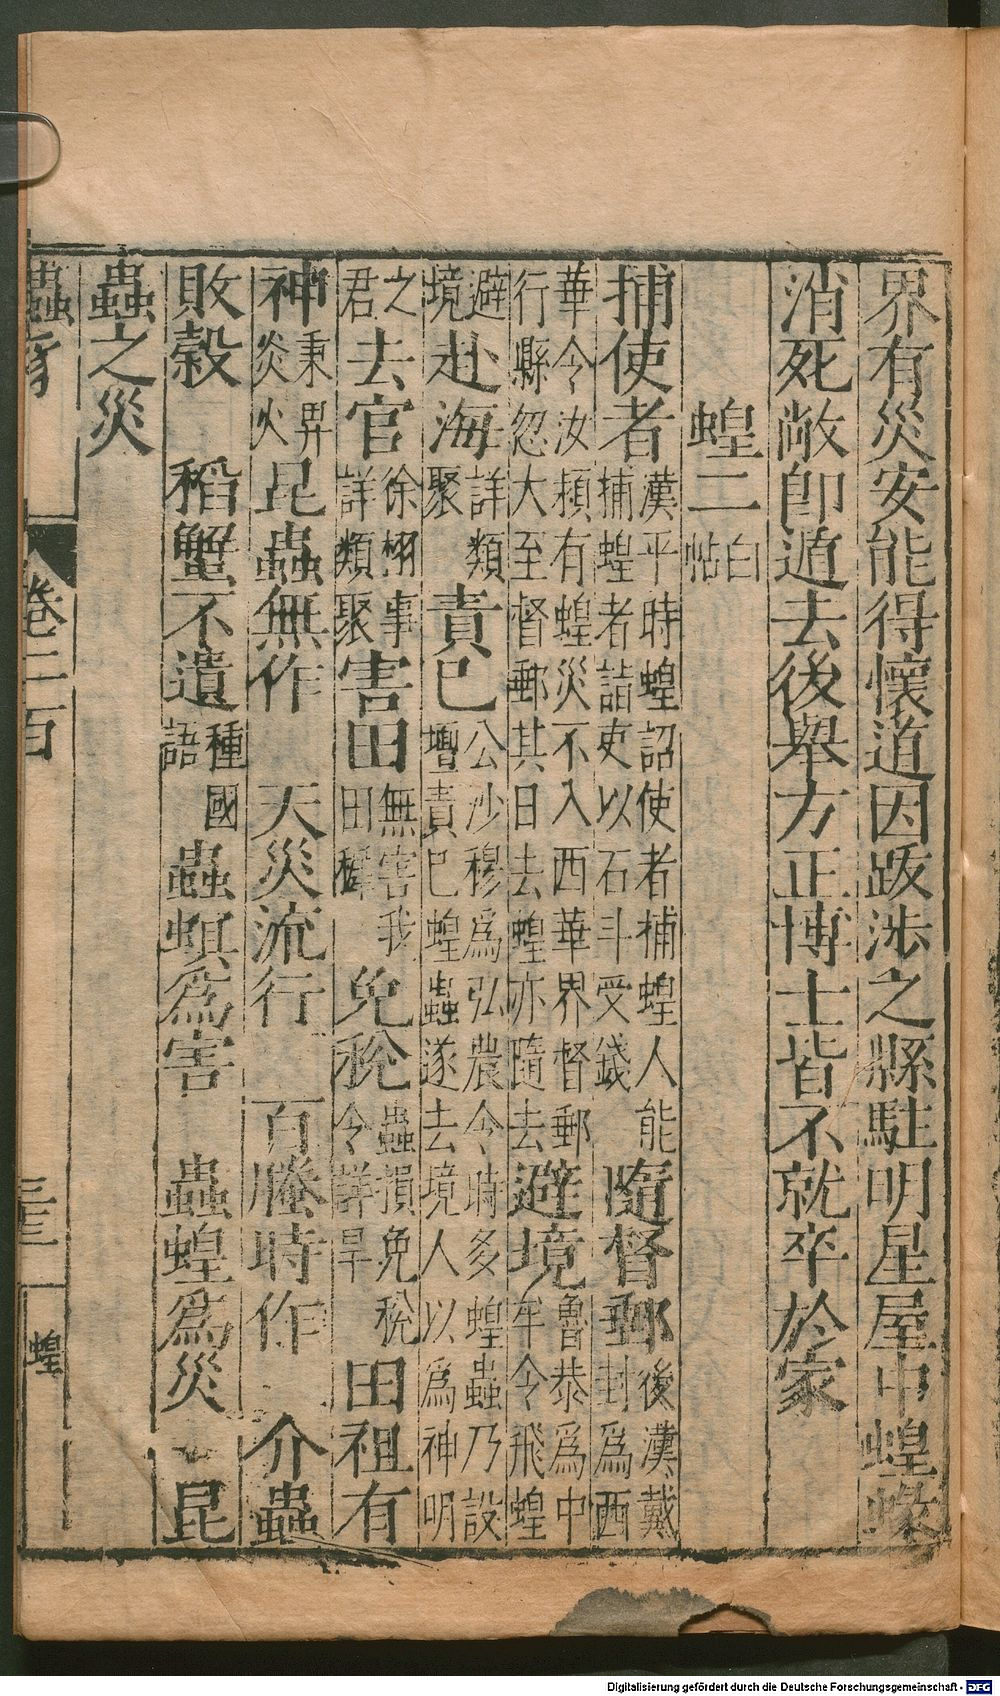 界有災安能得懷道因跋涉之縣駐明星屋中蝗蝝
消死敞卽遁去後舉方正博士皆不就卒於家
蝗二 白帖
捕使者 漢平時蝗詔使者捕蝗人能捕蝗者詣吏以石斗受錢 隨督郵 後漢戴封爲西
華令汝潁有蝗災不入西華界督郵行縣忽大至督郵其日去蝗亦隨去 避境 魯恭爲中牟令飛蝗
避境 赴海 詳類聚 責已 公沙穆爲弘農令時多蝗蟲乃設壇責已蝗蟲遂去境人以爲神明
之君 去官 徐栩事詳類聚 害田 無害我田穉 免稅 蟲損免稅令詳旱 田祖有
神 秉畀炎火 昆蟲無作 天災流行 百螣時作 介蟲
敗穀 稻蟹不遺 種國語 蟲螟爲害 蟲蝗爲災 昆
蟲之災
蟲豸 卷三百 三十三 蝗
Digitalisierung gefördert durch die Deutsche Forschungsgemeinschaft - DFG